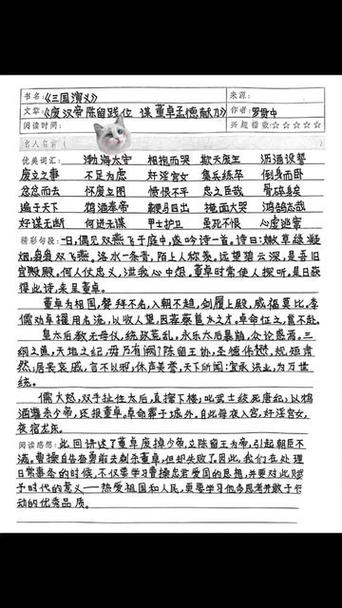 书名:《三国演义》 来源:
文章:《废汉帝陈留践位 谋董卓孟德献刀》 作者:罗贯中
阅读时间: 兴趣指数☆☆☆☆☆
名人名言
优美词汇: 渤海太守 相抱而哭 欺天罔主 沥酒设誓
废立之事 不足为虑 奸淫宫女 集兵练卒 倒身而卧
忿忿而去 怀废立图 愤恨不平 忠之臣哉 骨碎身矣
遍于天下 鸩酒奉帝 鞭马目出 掩面大哭 鸿鹄志哉
好谋无断 何进无谋 甲士护卫 虽死不恨 心虚逃窜
精彩句段:一日,偶见双燕飞于庭中,遂吟诗一首。诗曰:嫩草绿凝
烟,袅袅双飞燕。洛水一条青,陌上人称羡。远望碧云深,是吾旧
宫殿殿。何人仗忠义,泄我心中怨。董卓时常使人探听。是日获
得此诗,来呈董卓。
董卓为相国,赞拜不名,入朝不趋,剑履上殿,威福莫比。李
儒劝卓擢用名流,以收人望,因荐蔡邕之才。卓命征之,邕不赴。
皇太后教无母仪,统政荒乱。永乐太后暴崩,众论惑焉。三
纲之道,天地之纪,毋乃有阙?陈留王协,圣德伟懋,规矩肃
然,居丧哀戚,言不以邪,休声美誉,天下所闻:宜承洪业,为万世
统。
儒大怒,双手扯住太后,直撺下楼;叱武士绞死唐妃;以鸩
酒灌杀少帝。还报董卓,卓命葬于城外。自此每夜入宫,奸淫宫女,
夜宿龙床。
阅读感想:此回讲述了董卓废掉少帝,立陈留王为帝,引起朝臣不
满。曹操自告奋勇前去刺杀董卓,但却失败了。因此,我们在处理
日常事务的时候,不仅要学习曹操忠君爱国的思想,并要对此赋
予时代的意义——热爱祖国和人民,更要学习他多思考并敢于行
动的优秀品质。